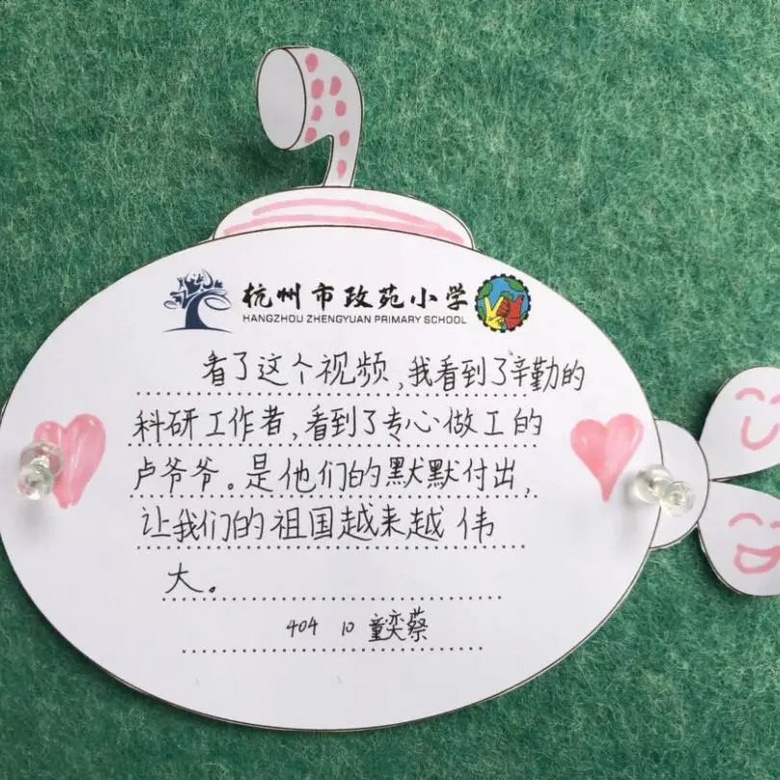 杭州市政苑小学
HANGZHOU ZHENGYUAN PRIMARY SCHOOL
看了这个视频,我看到了辛勤的
科研工作者,看到了专心做工的
卢爷爷。是他们的默默付出,
让我们的祖国越来越伟
大。
404 10 童奕蔡